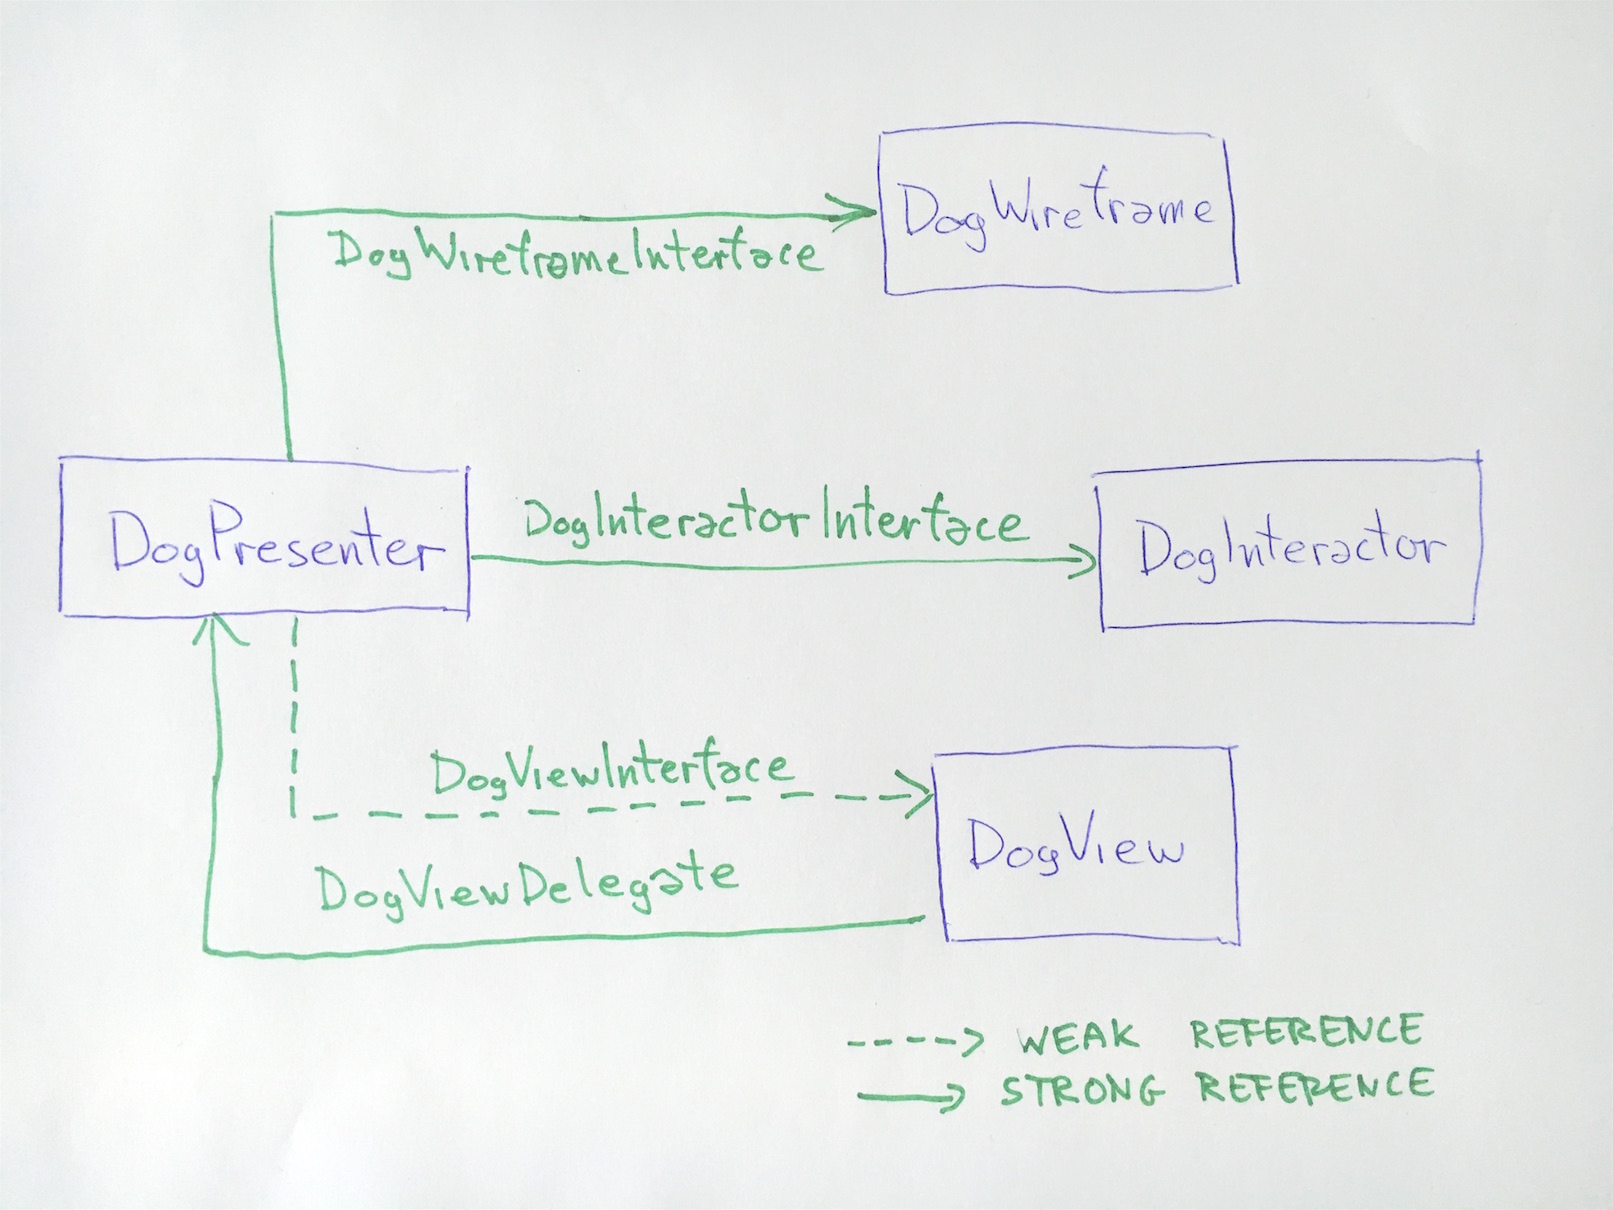 DogWireframe
DogWireframeInterface
DogPresenter
DogInteractorInterface
DogInteractor
DogViewInterface
DogView
DogViewDelegate
WEAK REFERENCE
STRONG REFERENCE